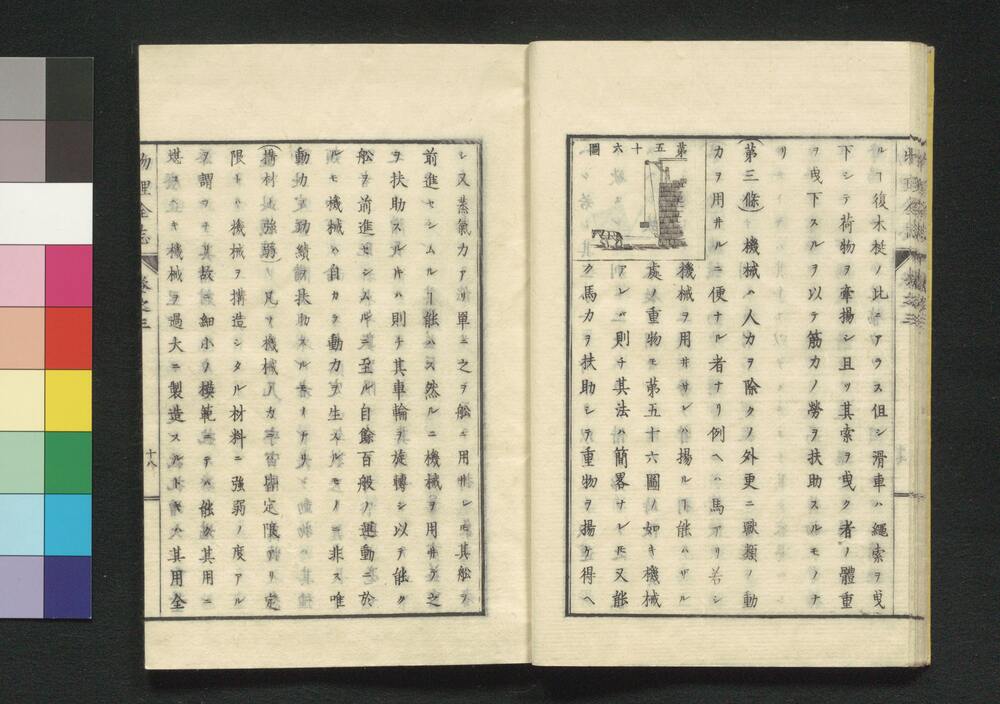 ルヿ復木梃ノ比ニアラス但シ滑車ハ繩索ヲ曳
下シテ荷物ヲ牽揚シ且リ其索ヲ曳ク者ノ體重
ヲ曳下スルヲ以テ筋力ノ勞ヲ扶助スルモノナ
リ
(第三條) 機械ハ人力ヲ除クノ外更ニ獸類ノ動
力ヲ用井ルニ便ナル者ナリ例ヘハ馬アリ若シ
第五十六圖
機械ヲ用井サレハ揚ルヿ能ハザル
處ノ重物モ第五十六圖ノ如キ機械
アレバ則チ其法ハ簡畧ナレ𪜈又能
ク馬力ヲ扶助シテ重物ヲ揚ケ得ヘ
シ又蒸氣力アリ單ニ之ヲ舩ニ用井レ𪜈其舩ヲ
前進セシムルヿ能ハス然ルニ機械ヲ用井テ之
ヲ扶助スル𪜈ハ則チ其車輪ヲ旋轉シ以テ能ク
舩ヲ前進セシムルニ至ル自餘百般ノ運動ニ於
ルモ機械ハ自カラ動力ヲ生スルモノニ非ス唯
動力ノ功績ヲ扶助スルモノナリ
(搆材ノ強弱) 凡ソ機械ノ力ニ皆定限アリ定
限トハ機械ヲ搆造シタル材料ニ強弱ノ度アル
ヲ謂フモ其故ニ細小ノ模範ニテハ能ク其用ニ
堪ユキ機械ヲ過大ニ製造スルトキハ其用全
物理全志 卷之三
十八